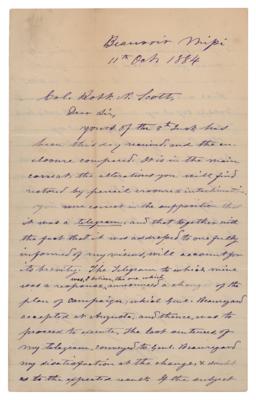 Beauvoir Missi
11th Oct. 1884
Col. Robt. N. Scott,
Dear Sir,
yours of the 8th Inst. has
been this day received, and the en-
closure compared. It is in the main
correct, the alterations you will find
noted by pencil erasure & interlineation.
You were correct in the supposition that
it was a telegram, and that together with
the fact that it was addressed to one fully
informed of my views, will account for
its brevity. The Telegram to which mine
was, I believe, the one which
was a response, announced a change of the
plan of Campaign, which Genl. Beauregard
accepted at Augusta, and thence, was to
proceed to execute. The last sentence of
my telegram, conveyed to Genl. Beauregard
my dissatisfaction at the change, & doubt
as to the expected result. If the subject